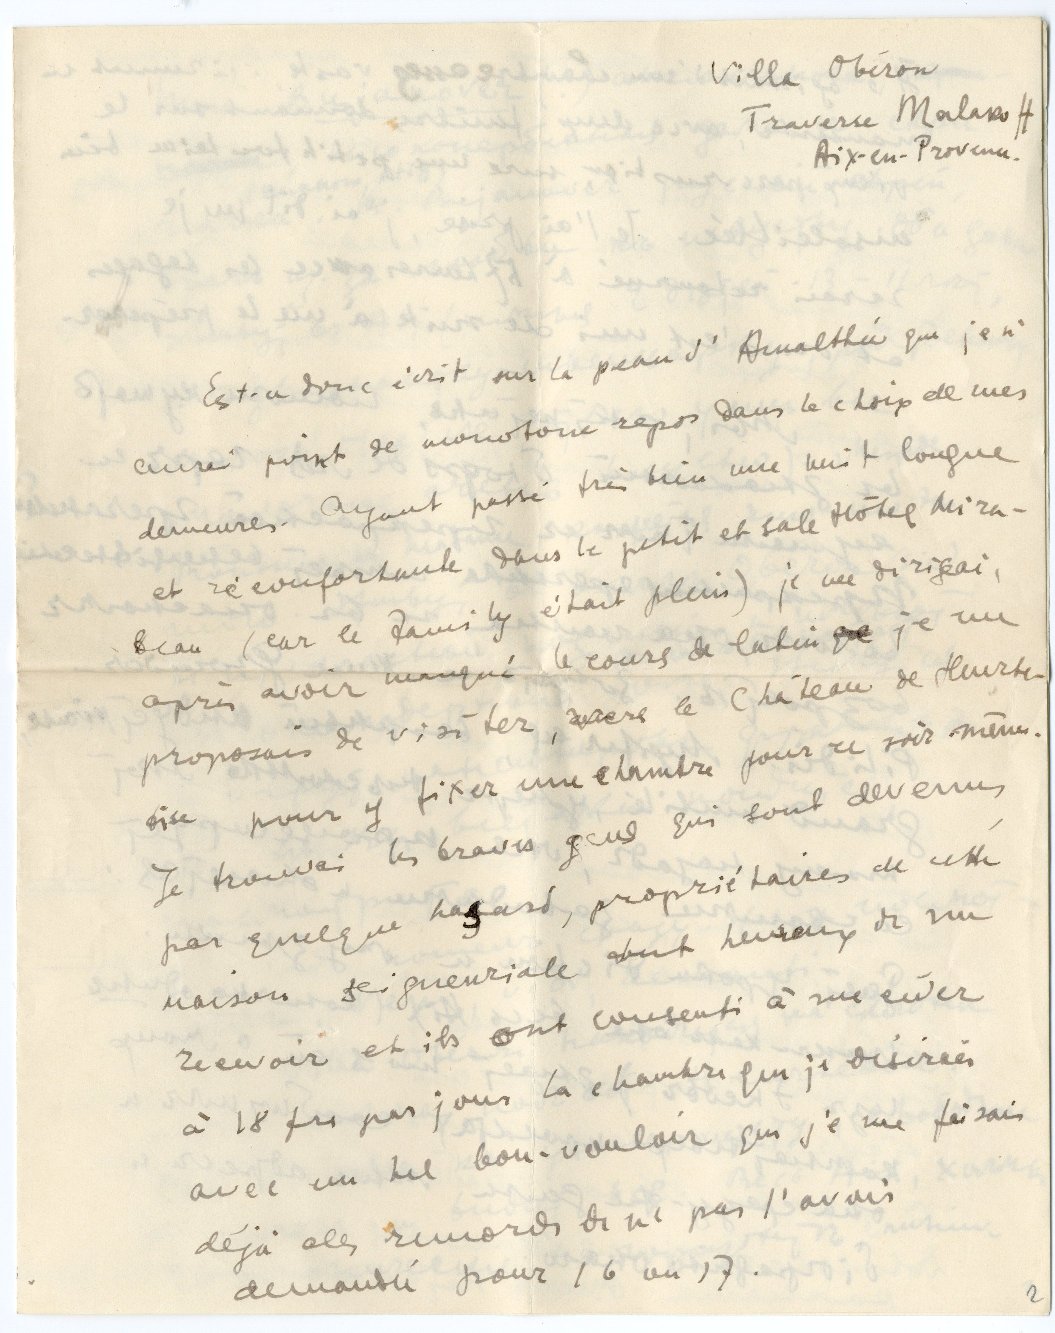 Villa Obéron
Traverse Malakoff
Aix-en-Provence.
Est-ce donc écrit sur la peau d'Amalthée que je n'
aurai point de monotone repos dans le choix de mes
demeures. Ayant passé très bien une nuit longue
et réconfortante dans le petit et sale Hôtel Mira-
beau (car le Family était plein) je me dirigeai,
après avoir manqué le cours de latin que je me
proposais de visiter, vers le Château de Heurte-
sise pour y fixer une chambre pour ce soir-même.
Je trouvai les braves gens qui sont devenus,
par quelque hasard, propriétaires de cette
maison seigneuriale tout heureux de me
recevoir et ils ont consenti à me céder
à 18 frs par jour la chambre que je désirais
avec un tel bon-vouloir que je me faisais
déjà des remords de ne pas l'avoir
demandée pour 16 ou 17.
2